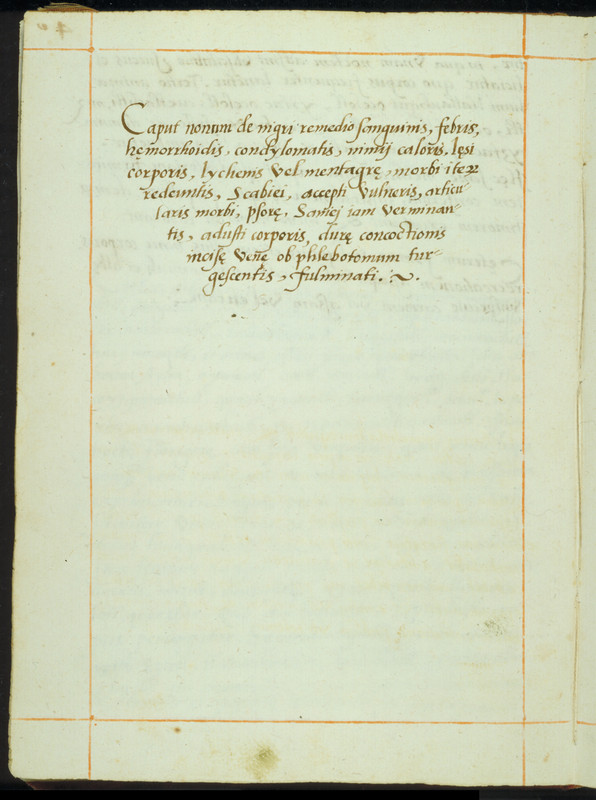 Caput nonum de nigri remedio sanguinis, febris,
hęmorrhoidis, condylomatis, nimij caloris, lęsi
corporis, lychenis vel mentagrę, morbi iteꝝ
redeuntis, Scabiei, accepti vulneris, articu-
laris morbi, psorę, Saniej iam verminan-
tis, adusti corporis, durę concoctionis
incisę venę ob phlebotomum tur-
gescentis, fulminati.